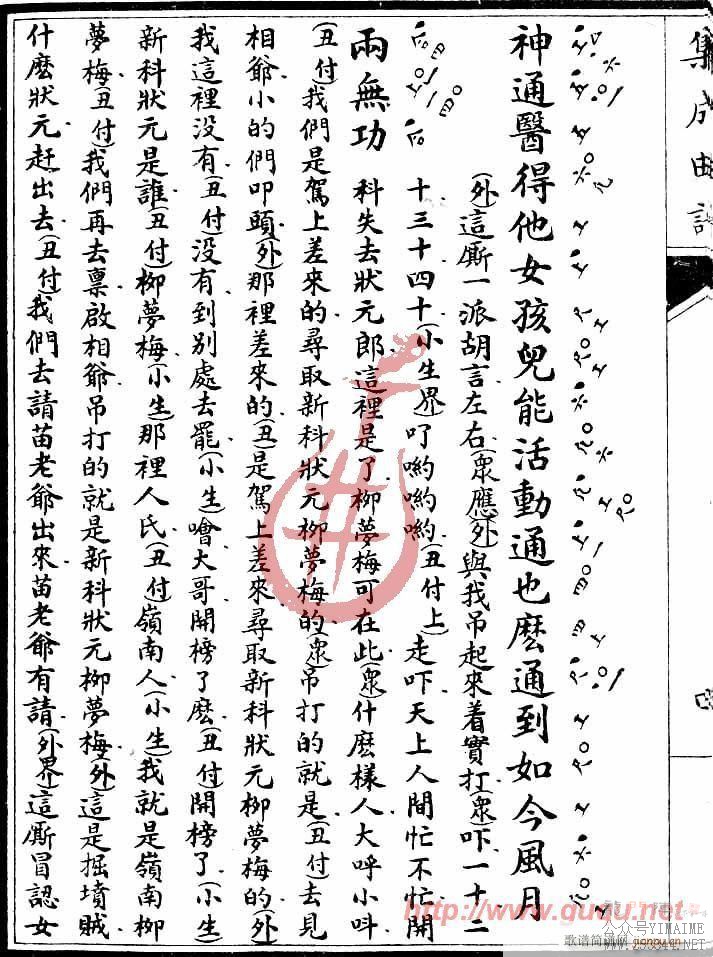 集成曲譜
神通醫得他女孩兒能活動通也麽通到如今風月
(外)這厮一派胡言左右(衆應)(外)與我吊起來着實打(衆)吓一十二
十三十四十(小生界)吖喲喲喲(丑付上)走吓天上人間忙不忙開
兩無功 科失去狀元郎這裡是了柳夢梅可在此(衆)什麽樣人大呼小呌
(丑付)我們是駕上差來的尋取新科狀元柳夢梅的(衆)吊打的就是(丑付)去見
相爺小的們叩頭(外)那裡差來的(丑)是駕上差來尋取新科狀元柳夢梅的(外)
我這裡没有(丑付)没有到别處去罷(小生)噲大哥開榜了麽(丑付)開榜了(小生)
新科狀元是誰(丑付)柳夢梅(小生)那裡人氏(丑付)嶺南人(小生)我就是嶺南柳
夢梅(丑付)我們再去禀啟相爺吊打的就是新科狀元柳夢梅(外)這是掘墳賊
什麽狀元赶出去(丑付)我們去請苗老爺出來苗老爺有請(外界)這厮冒認女
http://www.guqu.net
公众号YIMAIME
歌谱简谱网